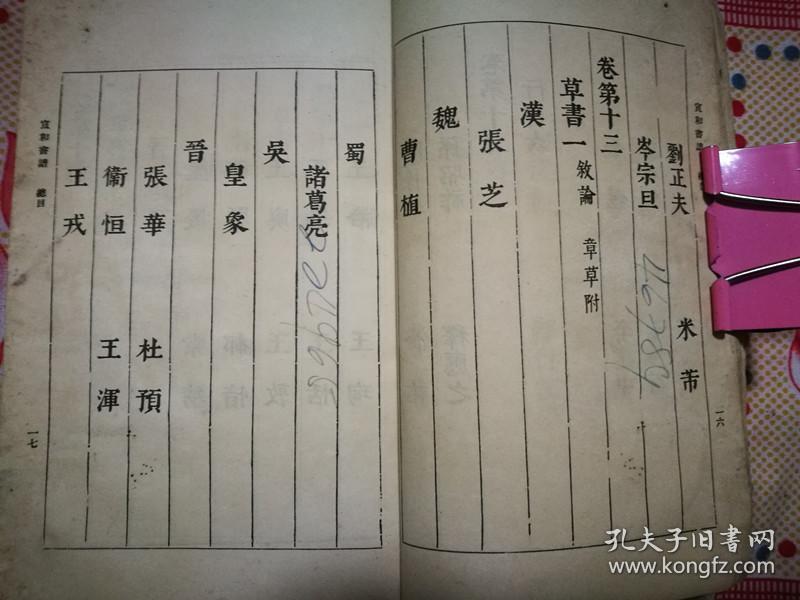 宣和書譜 總目
劉正夫 米芾
岑宗旦
卷第十三
草書一 敘論 章草附
漢
張芝
魏
曹植
一六
蜀
諸葛亮
吳
皇象
晉
張華 杜預
衞恒 王渾
王戎
宣和書譜 總目
一七
孔夫子旧书网
www.kongfz.com